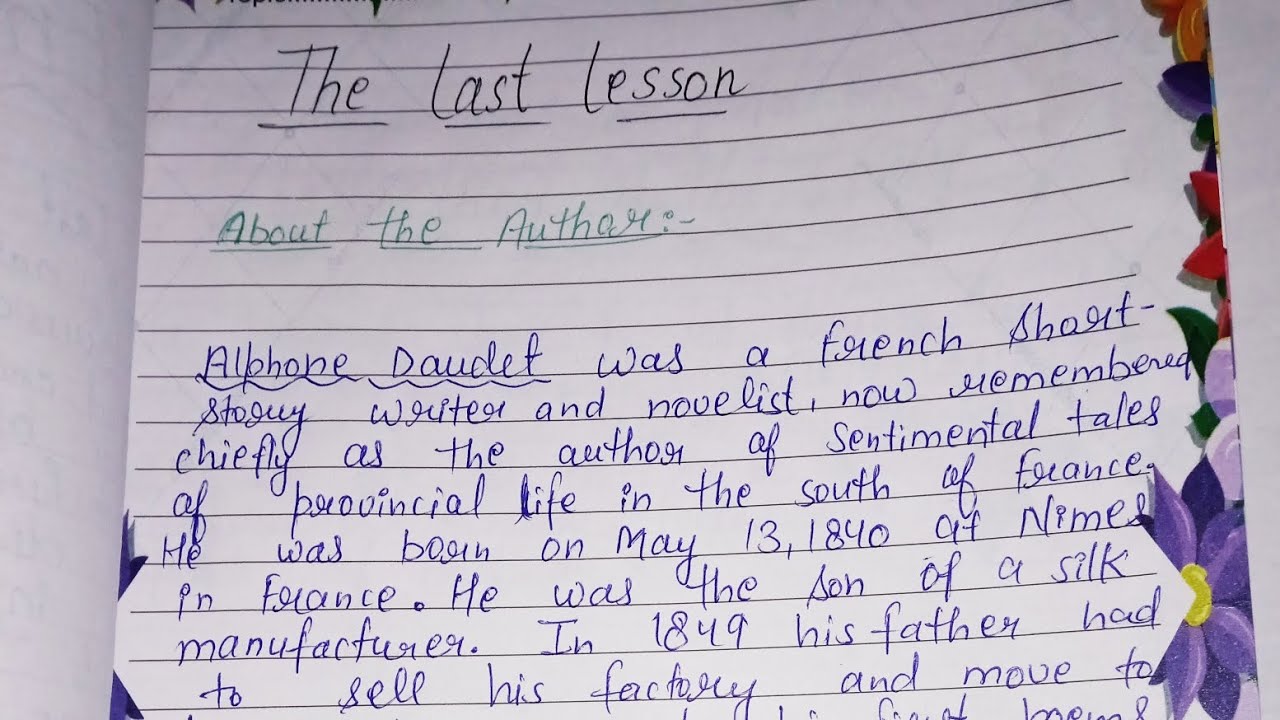 The Last Lesson
About the Author:-
Alphone Daudet was a french short-
story writer and novelist, now remembered
chiefly as the author of sentimental tales
of provincial life in the south of france.
He was born on May 13, 1840 at Nimes
in France. He was the son of a silk
manufacturer. In 1849 his father had
to sell his factory and move to